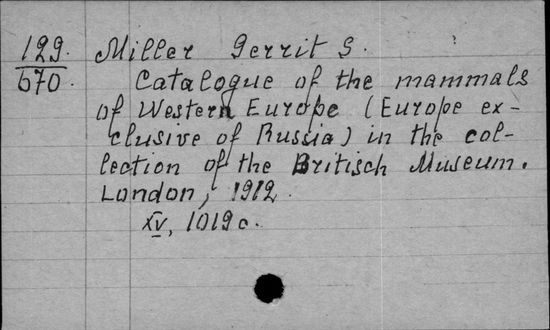 129. Miller Gerrit S.
670. Catalogue of the mammals
of Western Europe (Europe ex-
clusive of Russia) in the col-
lection of the Britisch Museum.
London, 1912.
XV, 1019 c.